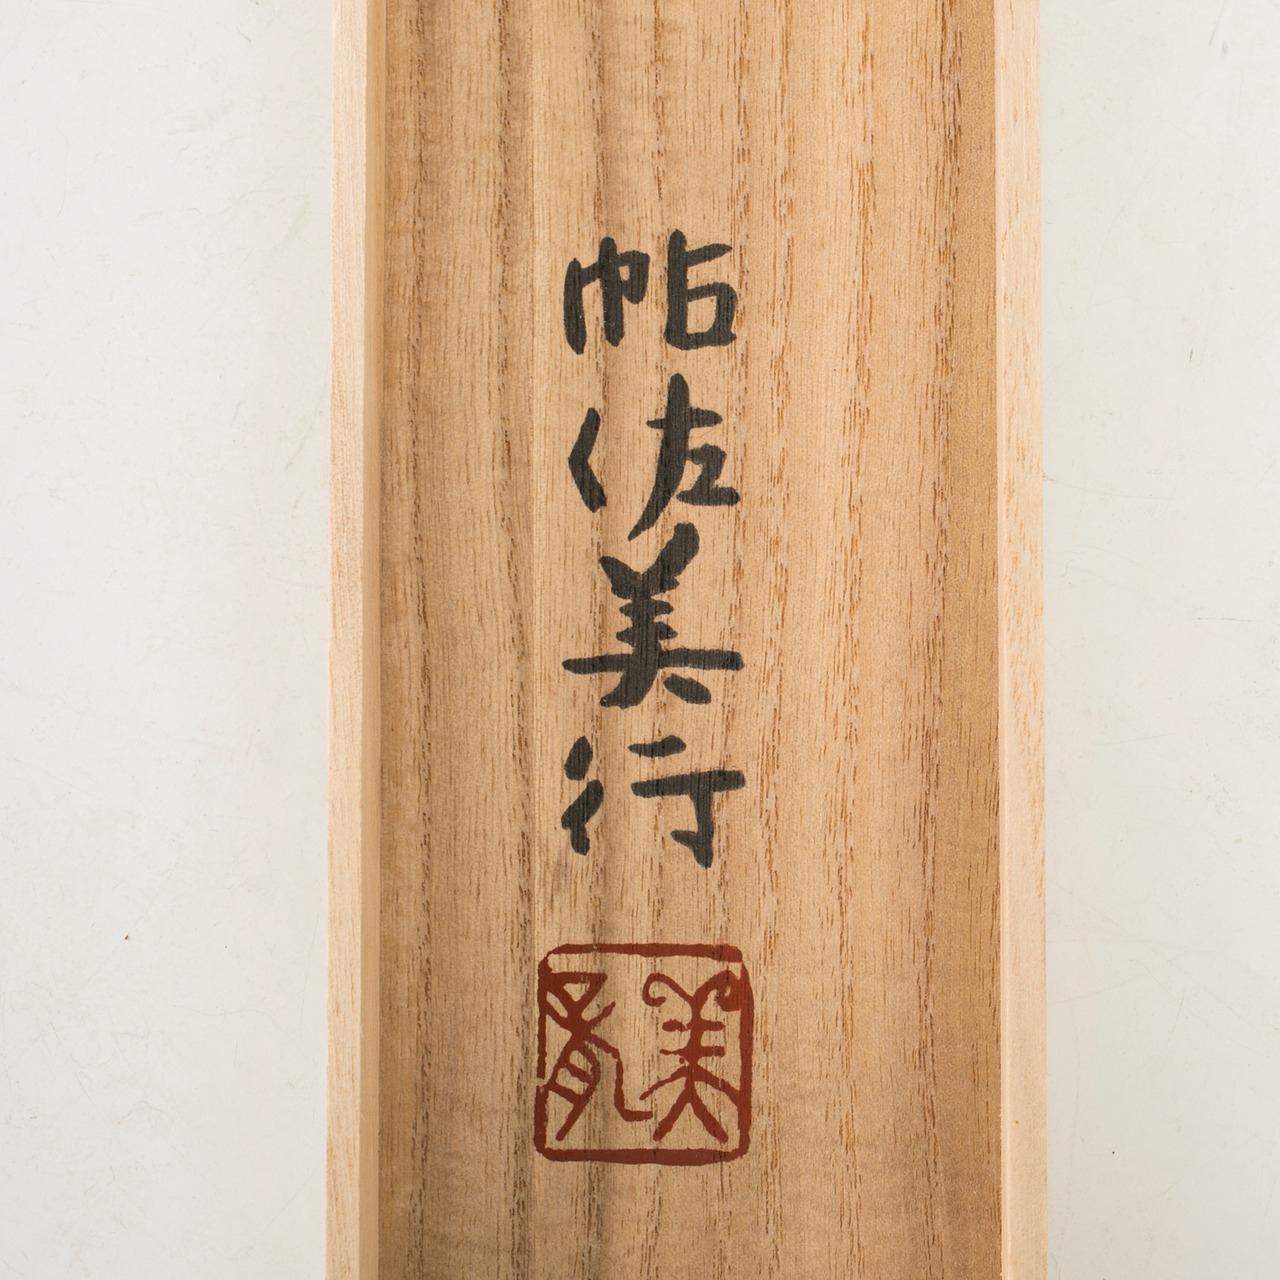 帖佐美行
美